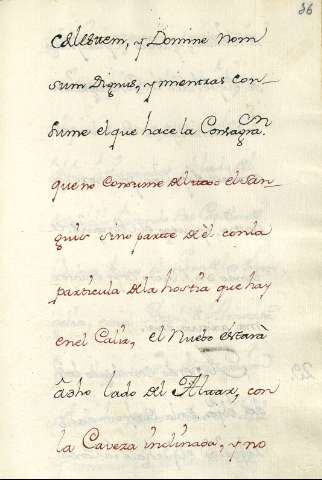 36
Celestem, y Domine nom
sum Dignus, y mientras con-
sume el que hace la Consagra.cn
que no consume del todo el san-
guis sino parte de èl con la
particula de la hostia que hay
en el Caliz, el Nuebo estarà
à dho lado del Altar, con
la Caveza inclinada, y no